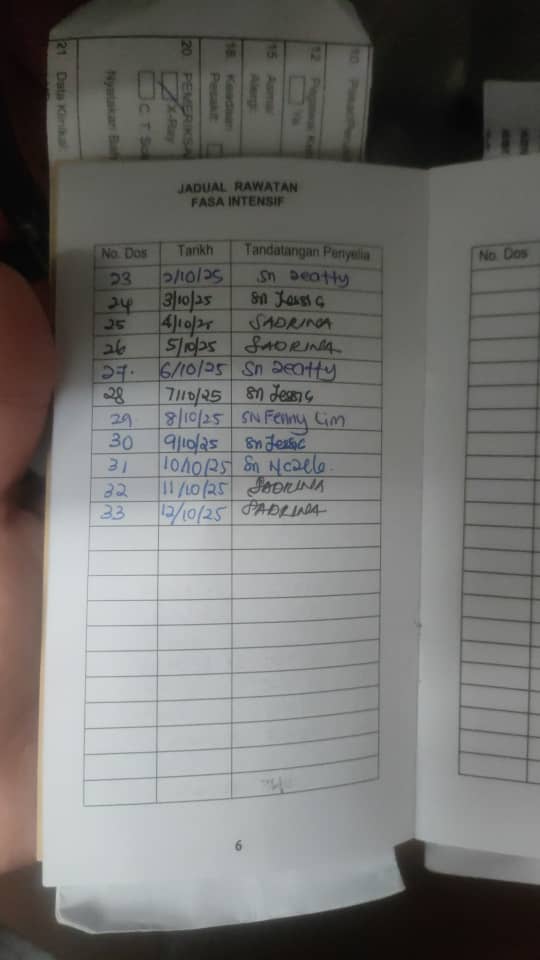 10. 
12. Pegawai
Ya
15. Asma/
Alergi
18. Keadaan
Pesakit
20. PEMERIKSA
X-Ray
C.T
Nyatakan Bah
21. Data Klinikal
JADUAL RAWATAN
FASA INTENSIF
No. Dos Tarikh Tandatangan Penyelia
23 2/10/25 Sn Zeatty
24 3/10/25 Sn Jessic
25 4/10/25 SADRINA
26 5/10/25 SADRINA
27. 6/10/25 Sn Zeatty
28 7/10/25 Sn Jessic
29. 8/10/25 SN Fenny Lim
30 9/10/25 Sn Jessic
31 10/10/25 Sn
32 11/10/25 SADRINA
33 12/10/25 SADRINA
6
No. Dos